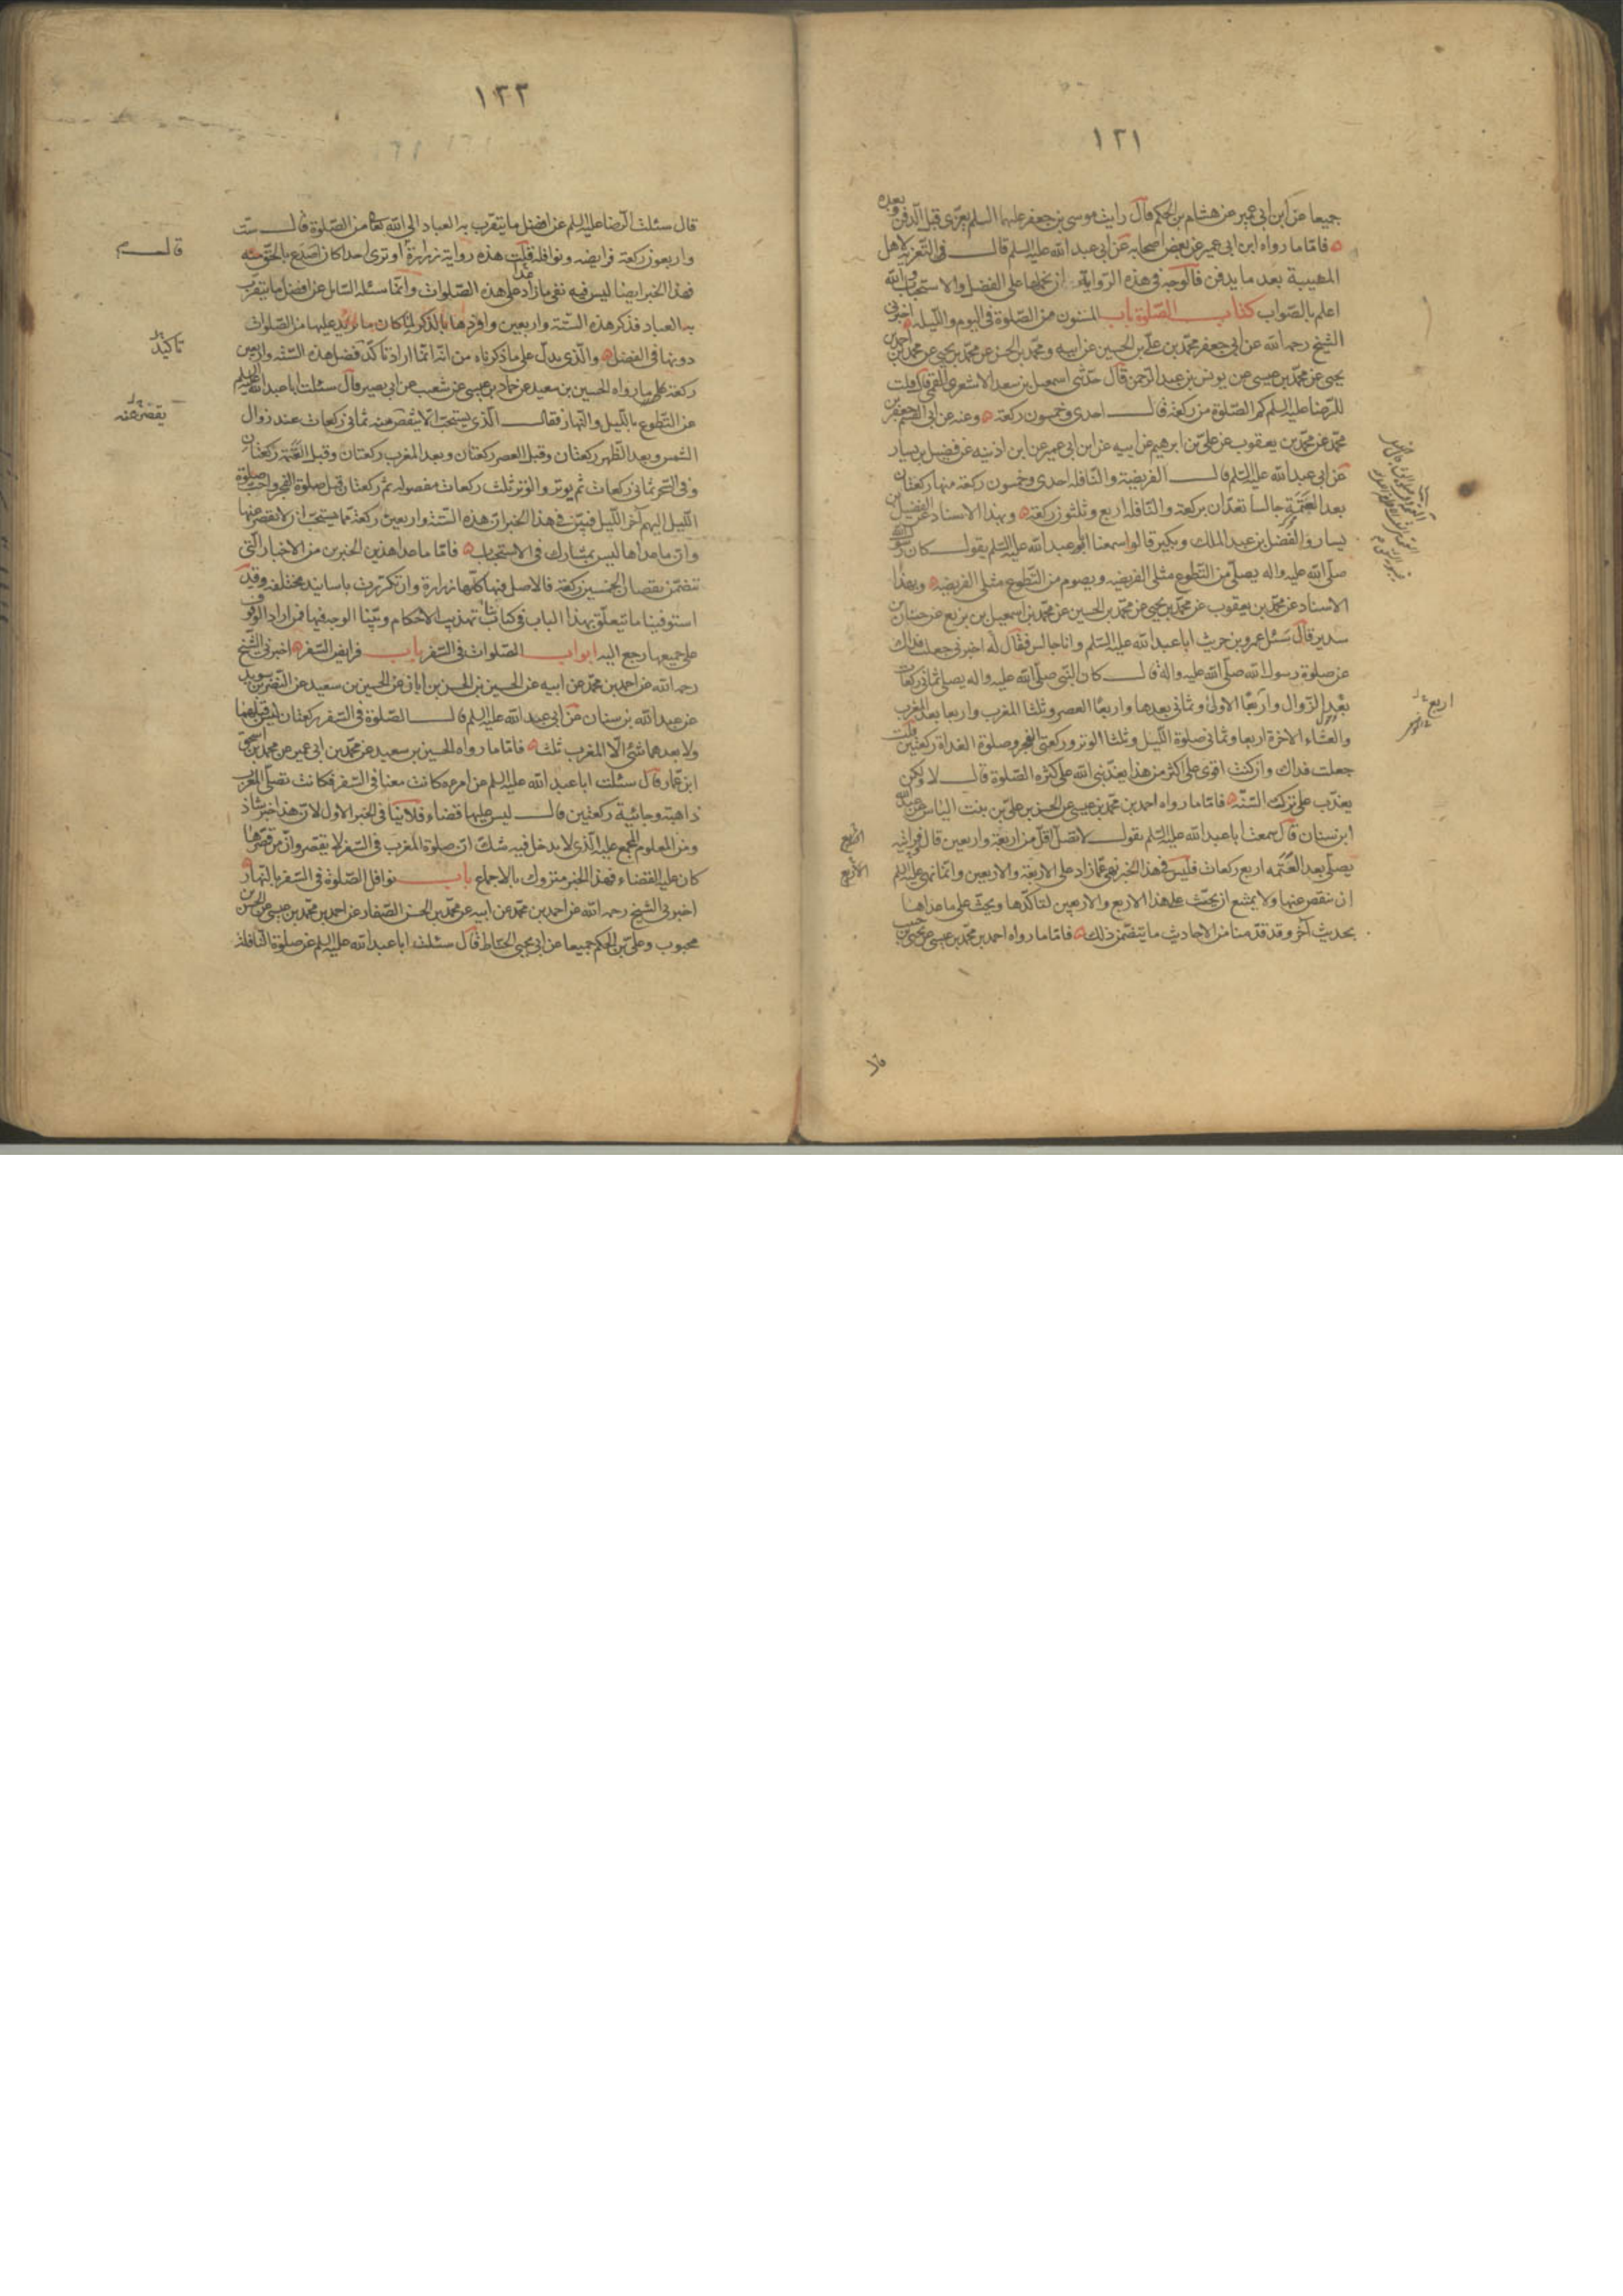 ١٢١
جميعا عن ابن ابى عمير عن هشام بن الحكم قال رايت موسى بن جعفر عليهما السلم يعزى قبل الدفن وبعده
فاما ما رواه ابن ابى عمير عن بعض اصحابه عن ابى عبد الله عليه السلم قال فى التعزية لاهل
المصيبة بعد ما يدفن فالوجه فى هذه الرواية ان نحملها على الفضل والاستحباب والله
اعلم بالصواب كتاب الصلوة باب المسنون من الصلوة فى اليوم والليله اخبرنى
الشيخ رحمه الله عن ابى جعفر محمد بن على بن الحسين عن ابيه ومحمد بن الحسن عن محمد بن يحيى عن محمد بن احمد بن
يحيى عن محمد بن عيسى عن يونس بن عبد الرحمن قال حدثنى اسمعيل بن سعد الاشعرى القمى قال قلت
للرضا عليه السلم كم الصلوة من ركعة قال احدى وخمسون ركعة وعنه عن ابى القسم جعفر بن
محمد عن محمد بن يعقوب عن على بن ابرهيم عن ابيه عن ابن ابى عمير عن ابن اذينه عن فضيل بن يسار
عن ابى عبد الله عليه السلم قال الفريضة والنافلة احدى وخمسون ركعة منها ركعتان
بعد العتمة جالسا تعدان بركعة والنافلة اربع وثلثون ركعة وبهذا الاسناد عن الفضيل بن
يسار والفضل بن عبد الملك وبكير قالوا سمعنا ابو عبد الله عليه السلم يقول كان رسول الله
صلى الله عليه واله يصلى من التطوع مثلى الفريضه ويصوم من التطوع مثلى الفريضه وبهذا
الاسناد عن محمد بن يعقوب عن محمد بن يحيى عن محمد بن الحسين عن محمد بن اسمعيل بن بزيع عن حنان بن
سدير قال سئل عمرو بن حريث ابا عبد الله عليه السلم وانا جالس فقال له اخبرنى جعلت فداك
عن صلوة رسول الله صلى الله عليه واله قال كان النبى صلى الله عليه واله يصلى ثمانى ركعات
بعد الزوال واربعا الاولى وثمانى بعدها واربعا العصر وثلثا المغرب واربعا بعد المغرب
والعشاء الاخرة اربعا وثمانى صلوة الليل وثلثا الوتر وركعتى الفجر وصلوة الغداة ركعتين قلت
جعلت فداك وان كنت اقوى على اكثر من هذا يعذبنى الله على كثرة الصلوة قال لا ولكن
يعذب على ترك السنة فاما ما رواه احمد بن محمد بن عيسى عن الحسن بن على بن بنت الياس عن عبد الله
ابن سنان قال سمعت ابا عبد الله عليه السلم يقول لا تصل اقل من اربعة واربعين قال ورايته
يصلى بعد العتمه اربع ركعات فليس فى هذا الخبر نهى عما زاد على الاربعة والاربعين وانما نهى عليه السلم
ان ننقص عنها ولا يمتنع ان يحث على هذا الاربع والاربعين لتاكدها ويحث على ما عداها
بحديث آخر وقد قدمنا من الاحاديث ما يتضمن ذلك فاما ما رواه احمد بن محمد بن عيسى عن يحيى بن حبيب
اربع
الاربع
قال
١٢٢
قال سئلت الرضا عليه السلم عن افضل ما يتقرب به العباد الى الله تعالى من الصلوة قال ست
واربعون ركعة فرايضه ونوافله قلت هذه رواية زرارة قال اوترى احدا كان اصدع بالحق منه
فهذا الخبر ايضا ليس فيه نفى ما زاد على هذه الصلوات وانما سئله السائل عن افضل ما يتقرب
به العباد فذكر هذه الستة واربعين وافردها بالذكر لما كان ما يزيد عليها من الصلوات
دونها فى الفضل والذى يدل على ما ذكرناه من انه انما اراد تاكد فضل هذه الستة واربعين
ركعة على ما رواه الحسين بن سعيد عن حماد بن عيسى عن شعيب عن ابى بصير قال سئلت ابا عبد الله عليه السلم
عن التطوع بالليل والنهار فقال الذى يستحب الا ينقص منه ثمانى ركعات عند زوال
الشمس وبعد الظهر ركعتان وقبل العصر ركعتان وبعد المغرب ركعتان وقبل العتمة ركعتان
وفى السحر ثمانى ركعات ثم يوتر والوتر ثلث ركعات مفصوله ثم ركعتان قبل صلوة الفجر واحب صلوة
الليل اليهم آخر الليل فبين فى هذا الخبر ان هذه الستة واربعين ركعة مما يستحب ان لا نقصر عنها
وان ما عداها ليس بمشارك فى الاستحباب فاما ما عدا هذين الخبرين من الاخبار التى
تتضمن نقصان الخمسين ركعة فالاصل فيها كلها زرارة وان تكررت باسانيد مختلفه وقد
استوفينا ما يتعلق بهذا الباب فى كتابنا تهذيب الاحكام وبينا الوجه فيها فمن اراد الوقوف
على جميعها رجع اليه ابواب الصلوات فى السفر باب فرايض السفر اخبرنى الشيخ
رحمه الله عن احمد بن محمد عن ابيه عن الحسين بن الحسن بن ابان عن الحسين بن سعيد عن النضر بن سويد
عن عبد الله بن سنان عن ابى عبد الله عليه السلم قال الصلوة فى السفر ركعتان ليس قبلهما
ولا بعدهما شئ الا المغرب ثلث فاما ما رواه الحسين بن سعيد عن محمد بن ابى عمير عن محمد بن اسحق
ابن عمار قال سئلت ابا عبد الله عليه السلم عن امرءه كانت معنا فى السفر فكانت تصلى المغرب
ذاهبة وجائية ركعتين قال ليس عليها قضاء فلا ينافى الخبر الاول لان هذا خبر شاذ
ومن المعلوم المجمع عليه الذى لا يدخل فيه شك ان صلوة المغرب فى السفر لا يقصر وان من قصرها
كان عليه القضاء فهذا الخبر متروك بالاجماع باب نوافل الصلوة فى السفر بالنهار
اخبرنى الشيخ رحمه الله عن احمد بن محمد عن ابيه عن محمد بن الحسن الصفار عن احمد بن محمد بن عيسى عن الحسن بن
محبوب وعلى بن الحكم جميعا عن ابى يحيى الحناط قال سئلت ابا عبد الله عليه السلم عن صلوة النافلة
قال
تاكيد
يقصر عنه